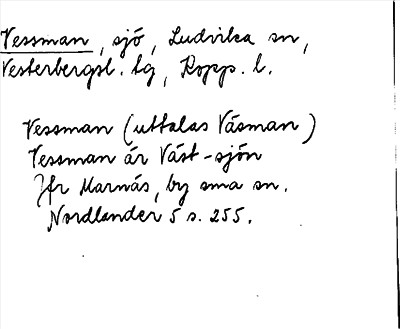 Vessman, sjö, Ludvika sn,
Vesterbergsl. tg, Kopp. l.
Vessman (uttalas Väsman)
Vessman är Väst-sjön
Jfr Marnäs, by sma sn.
Nordlander 5 s. 255.